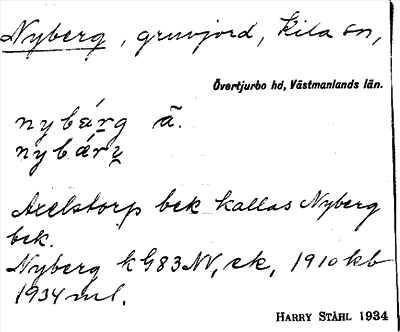 Nyberg, gruvjord, Kila sn,
Övertjurbo hd, Västmanlands län.
nybárg ā.
nybárγ
Axelstorp bek kallas Nyberg
bek.
Nyberg k G83NV, ek, 1910 kb
1934 ml.
HARRY STÅHL 1934